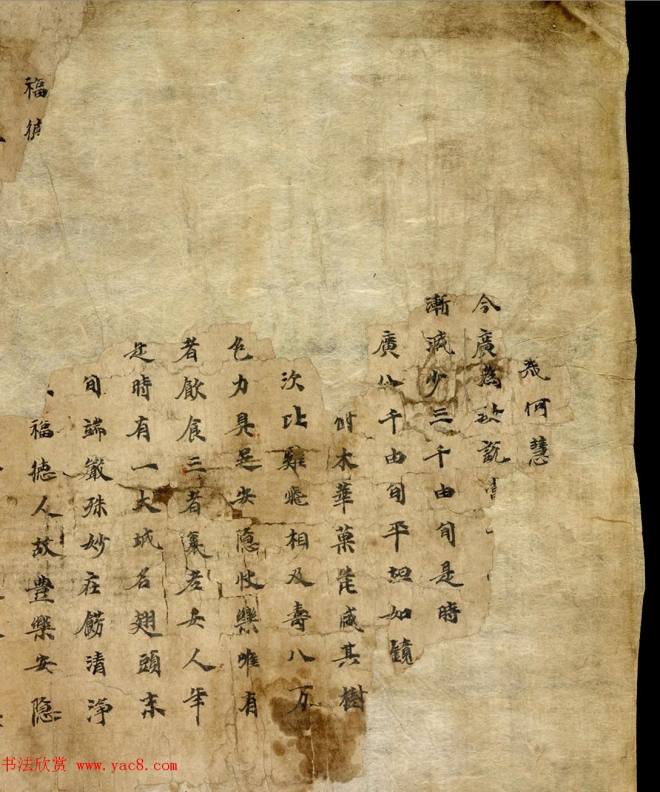 幾何慧
今廣為汝說
漸減少三千由旬是時
廣八千由旬平坦如鏡
木華菓茂盛其樹
次比雞飛相及壽八万
色力具足安隱快樂唯有
者飲食三者衰老女人年
是時有一大城名翅頭末
旬端嚴殊妙莊餝清淨
福德 福德人故豊樂安隱
书法欣赏 www.yac8.com